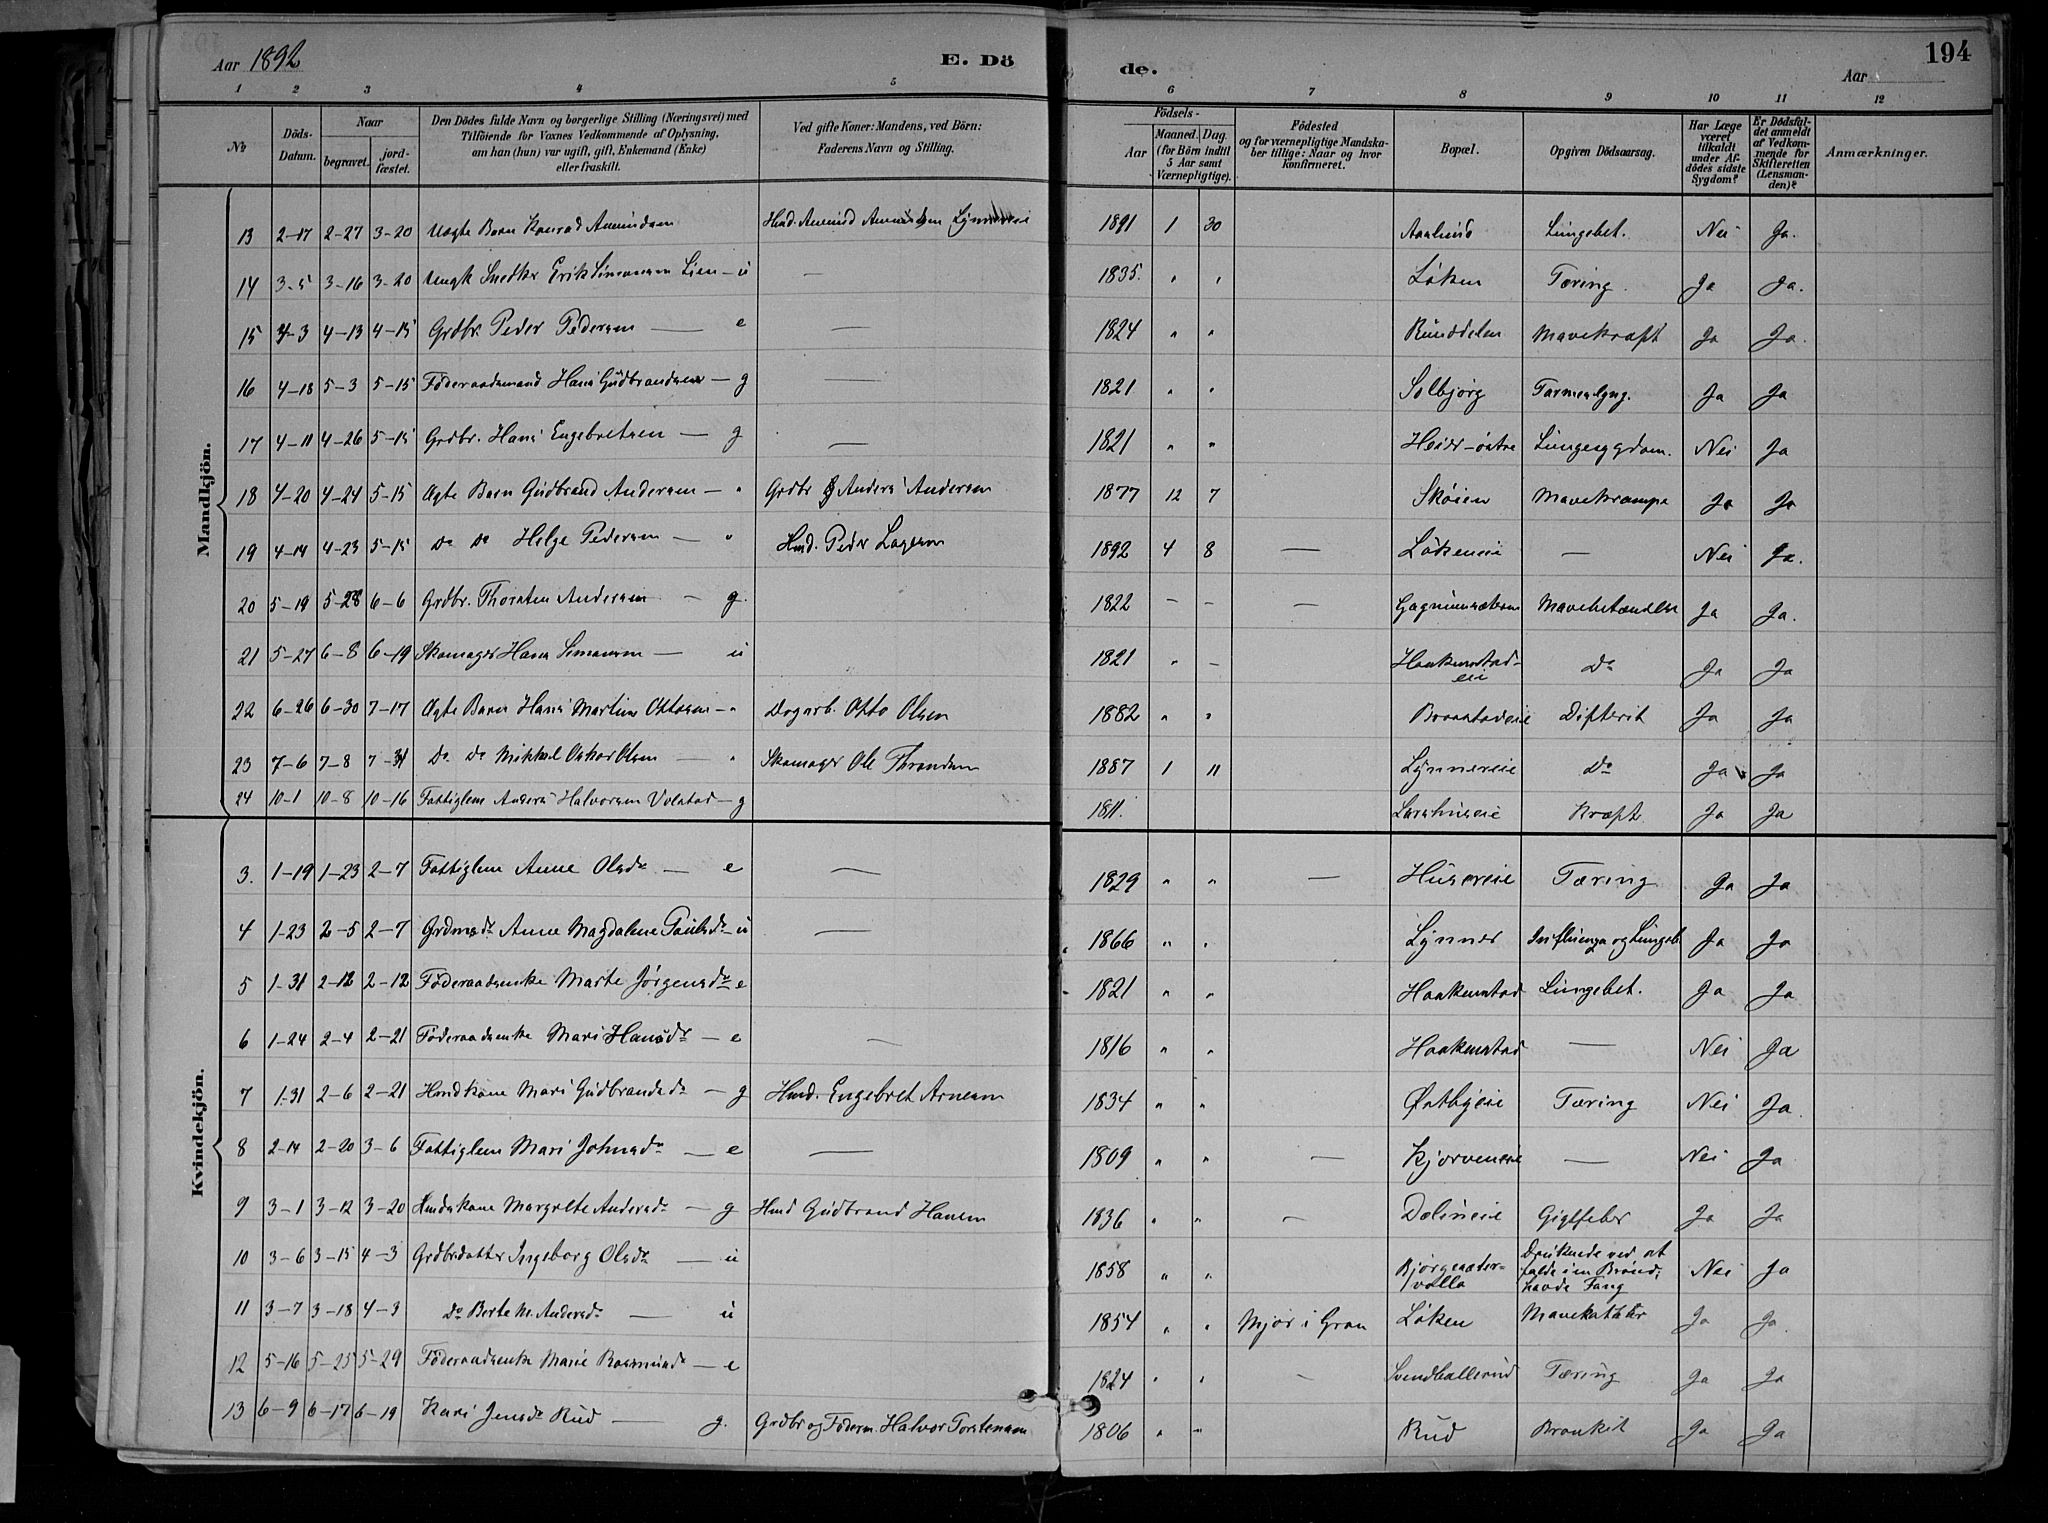 Aar 1892
E. Dö
de.
194
Aar
1 2 3 4 5 6 7 8 9 10 11 12
No
Döds-Datum.
Naar
begravet.
jord-fæstet.
Den Dödes fulde Navn og borgerlige Stilling (Næringsvei) med
Tilföiende for Voxnes Vedkommende af Oplysning,
om han (hun) var ugift, gift, Enkemand (Enke)
eller fraskilt.
Ved gifte Koner: Mandens, ved Börn:
Faderens Navn og Stilling.
Födsels-
Aar
Maaned. Dag.
(for Börn indtil
5 Aar samt
Værnepligtige).
Födested
og for værnepligtige Mandska-
ber tillige: Naar og hvor
konfirmeret.
Bopæl.
Opgiven Dödsaarsag.
Har Læge
været
tilkaldt
under Af-
dödes sidste
Sygdom?
Er Dödsfal-
det anmeldt
af Vedkom-
mende for
Skifteretten
(Lensman-
den)?
Anmærkninger.
Mandkjön.
13 2-17 2-27 3-20 Uægte Barn Konrad Amundsen Hmd. Amund Amundsen Lynnereie 1891 1 30 Lungebet. Nei Ja.
14 3-5 3-16 3-20 Ungk Snedker Erik Simensen Lien - u — 1835. " " Løken Tæring. Ja Ja.
15 4-3 4-13 4-15 Grdbr. Peder Pedersen — e — 1824 " " Runddelen Mavekræft Ja Ja.
16 4-18 5-3 5-15 Föderaadsmand Hans Gudbrandsen - g — 1821 " " Solbjørg Tarmeslyng. Ja Ja
17 4-11 4-26 5-15 Grdbr. Hans Engebretsen — g — 1821 " " Heier-östre Lungesygdom. Nei Ja
18 4-20 4-24 5-15 Ægte Barn Gudbrand Andersen - " Grdbr Anders Andersen 1877 12 7 Skøien Mavekrampe Ja Ja
19 4-14 4-23 5-15 Do Do Helge Pedersen - " Hmd. Peder Larsen 1892 4 8 — Løkeneie — Nei Ja.
20 5-19 5-28 6-6 Grdbr. Thorsten Andersen - g. 1822 - - — Mavebetændelse Ja Ja.
21 5-27 6-8 6-19 Skomager Hans Simensen — u 1821 " - Haakenstad-eie Do Ja Ja
22 6-26 6-30 7-17 Ægte Barn Hans Martin Ottosen - " Dagarb. Otto Olsen 1882 " " Difterit Ja Ja
23 7-6 7-8 7-31 Do Do Mikkel Oskar Olsen — " Skomager Ole Throndsen 1887 1 11 Lynnereie Do Ja Ja
24 10-1 10-8 10-16 Fattiglem Anders Halvorsen Volstad - g 1811. Kræft Ja Ja
Kvindekjön.
3. 1-19 1-23 2-7 Fattiglem Anne Olsdr — e — 1829 " " — Husereie Tæring Ja Ja
4 1-23 2-5 2-7 Grdmdr. Anne Magdalene Paulsdr - u — 1866 " " Lynner Influenza og Lungeb. Ja Ja
5 1-31 2-12 2-12 Föderaadsenke Marte Jørgensdr - e 1821 " " Haakenstad Lungebet. Ja Ja
6 1-24 2-4 2-21 Föderaadsenke Mari Hansdr - e — 1816 " " Haakenstad — Nei Ja
7 1-31 2-6 2-21 Hmdkone Mari Gudbrandsdr - g Hmd. Engebret Arnesen 1834 " " Østbyeie Tæring Nei Ja.
8 2-14 2-20 3-6 Fattiglem Mari Johnsdr — e — 1809 " " — Kjorveneie — Nei Ja
9 3-1 3-12 3-20 Hmdskone Margrete Andersdr - g Hmd Gudbrand Hansen 1836 " " — Dælineie Gigtfeber Ja Ja
10 3-6 3-15 4-3 Grdbrdatter Ingeborg Olsdr — u 1858 " " Bjørgesæter-valla Druknede ved at falde i en Brønd, havde Tang Nei Ja
11 3-7 3-18 4-3 Do Berte M. Andersdr — u 1854 " " Mjør i Gran Løken Mavekatarr Ja Ja.
12 5-16 5-25 5-29 Föderaadsenke Marie Rasmusdr - e 1824 " " - Svendballerud Tæring Ja Ja
13 6-9 6-17 6-19 Kari Jensdr Rud — g. Grdbr og Föderm. Halvor Torstensen 1806 " " Rud Bronkit Ja Ja